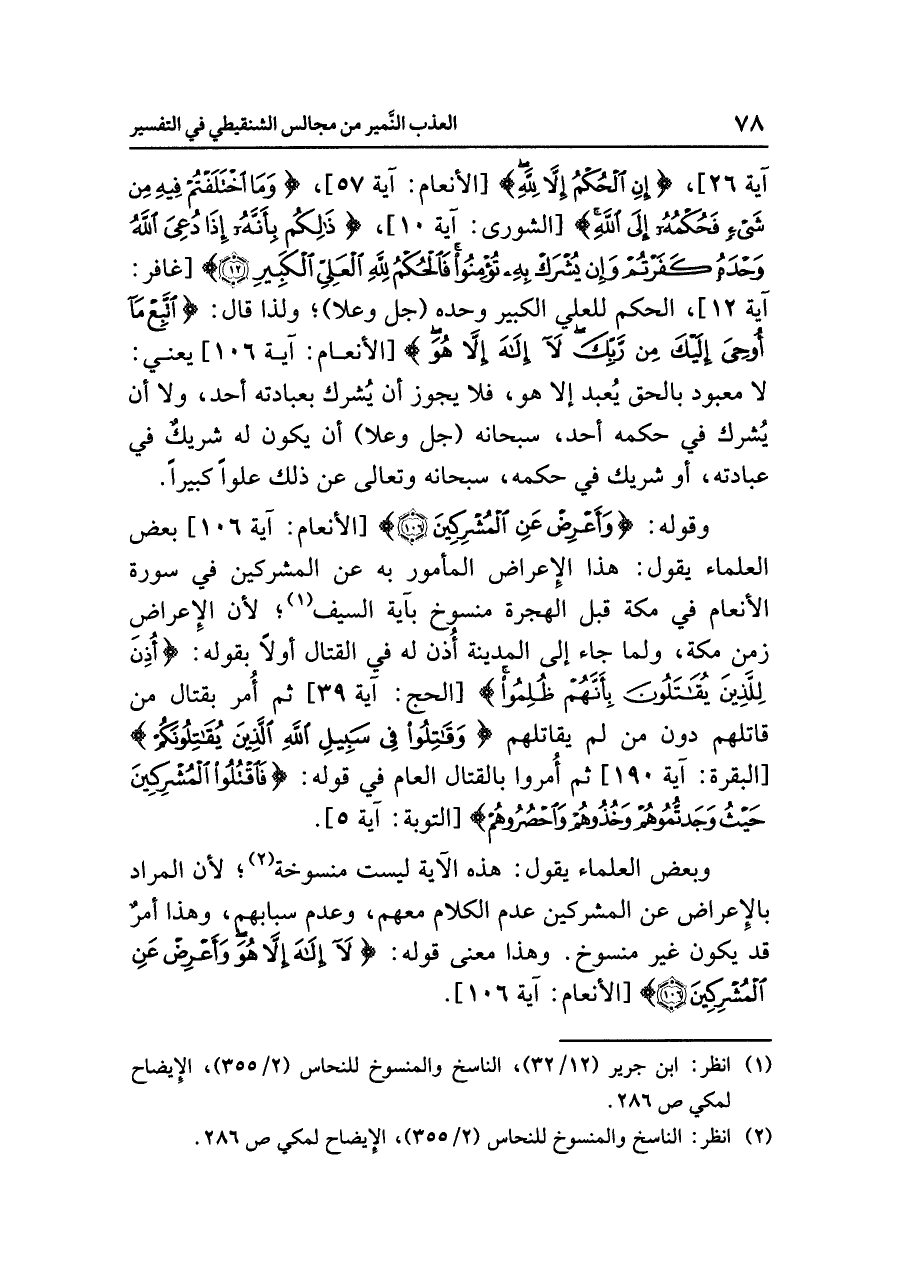 ٧٨ العذب النَّمير من مجالس الشنقيطي في التفسير
آية ٢٦]، ﴿إِنِ ٱلْحُكْمُ إِلَّا لِلَّهِۖ﴾ [الأنعام: آية ٥٧]، ﴿وَمَا ٱخْتَلَفْتُمْ فِيهِ مِن
شَىْءٍ فَحُكْمُهُۥٓ إِلَى ٱللَّهِۚ﴾ [الشورى: آية ١٠]، ﴿ذَٰلِكُم بِأَنَّهُۥٓ إِذَا دُعِىَ ٱللَّهُ
وَحْدَهُۥ كَفَرْتُمْ وَإِن يُشْرَكْ بِهِۦ تُؤْمِنُوا۟ۚ فَٱلْحُكْمُ لِلَّهِ ٱلْعَلِىِّ ٱلْكَبِيرِ ١٢﴾ [غافر:
آية ١٢]، الحكم للعلي الكبير وحده (جل وعلا)؛ ولذا قال: ﴿ٱتَّبِعْ مَآ
أُوحِىَ إِلَيْكَ مِن رَّبِّكَۖ لَآ إِلَٰهَ إِلَّا هُوَۖ﴾ [الأنعام: آية ١٠٦] يعني:
لا معبود بالحق يُعبد إلا هو، فلا يجوز أن يُشرك بعبادته أحد، ولا أن
يُشرك في حكمه أحد، سبحانه (جل وعلا) أن يكون له شريكٌ في
عبادته، أو شريك في حكمه، سبحانه وتعالى عن ذلك علواً كبيراً.
وقوله: ﴿وَأَعْرِضْ عَنِ ٱلْمُشْرِكِينَ ١٠٦﴾ [الأنعام: آية ١٠٦] بعض
العلماء يقول: هذا الإعراض المأمور به عن المشركين في سورة
الأنعام في مكة قبل الهجرة منسوخ بآية السيف(١)؛ لأن الإعراض
زمن مكة، ولما جاء إلى المدينة أُذن له في القتال أولاً بقوله: ﴿أُذِنَ
لِلَّذِينَ يُقَٰتَلُونَ بِأَنَّهُمْ ظُلِمُوا۟ۚ﴾ [الحج: آية ٣٩] ثم أُمر بقتال من
قاتلهم دون من لم يقاتلهم ﴿وَقَٰتِلُوا۟ فِى سَبِيلِ ٱللَّهِ ٱلَّذِينَ يُقَٰتِلُونَكُمْ﴾
[البقرة: آية ١٩٠] ثم أُمروا بالقتال العام في قوله: ﴿فَٱقْتُلُوا۟ ٱلْمُشْرِكِينَ
حَيْثُ وَجَدتُّمُوهُمْ وَخُذُوهُمْ وَٱحْصُرُوهُمْ﴾ [التوبة: آية ٥].
وبعض العلماء يقول: هذه الآية ليست منسوخة(٢)؛ لأن المراد
بالإعراض عن المشركين عدم الكلام معهم، وعدم سبابهم، وهذا أمرٌ
قد يكون غير منسوخ. وهذا معنى قوله: ﴿لَآ إِلَٰهَ إِلَّا هُوَۖ وَأَعْرِضْ عَنِ
ٱلْمُشْرِكِينَ ١٠٦﴾ [الأنعام: آية ١٠٦].
(١) انظر: ابن جرير (١٢/٣٢)، الناسخ والمنسوخ للنحاس (٢/٣٥٥)، الإيضاح
لمكي ص ٢٨٦.
(٢) انظر: الناسخ والمنسوخ للنحاس (٢/٣٥٥)، الإيضاح لمكي ص ٢٨٦.